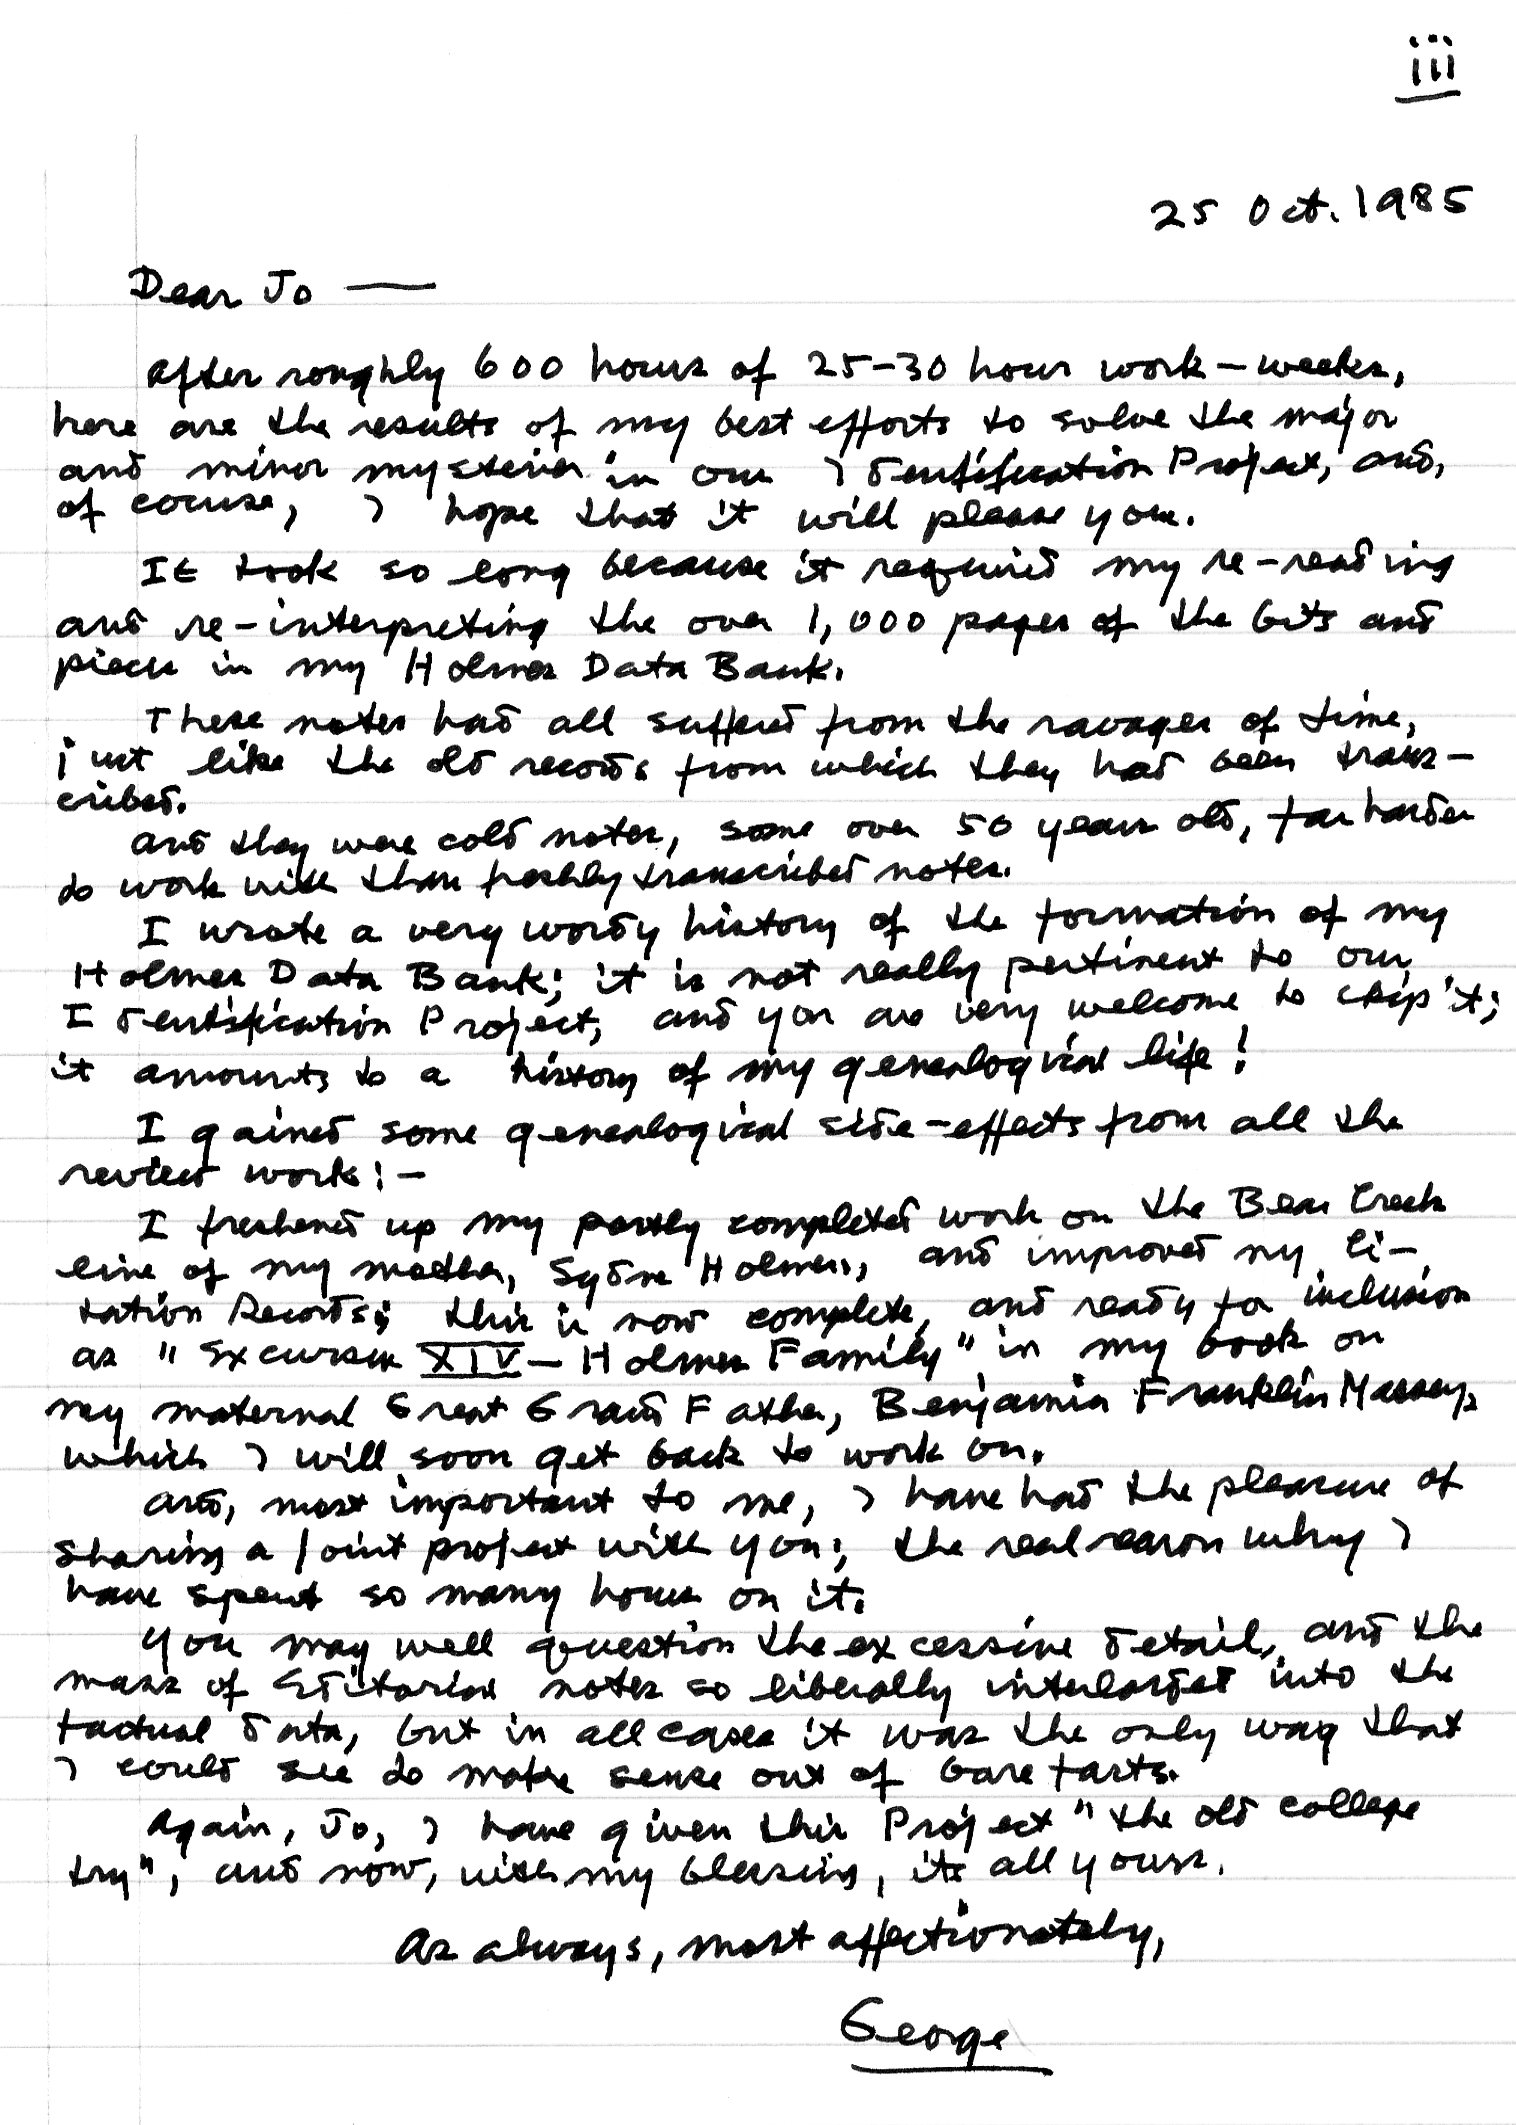 iii
25 Oct. 1985
Dear Jo —
After roughly 600 hours of 25-30 hour work-weeks,
here are the results of my best efforts to solve the major
and minor mysteries in our Identification Project, and,
of course, I hope that it will please you.
It took so long because it required my re-reading
and re-interpreting the over 1,000 pages of the bits and
pieces in my Holmes Data Bank.
These notes had all suffered from the ravages of time,
just like the old records from which they had been trans-
cribed.
And they were cold notes, some over 50 years old, far harder
to work with than freshly transcribed notes.
I wrote a very wordy history of the formation of my
Holmes Data Bank; it is not really pertinent to our
Identification Project, and you are very welcome to skip it;
it amounts to a history of my genealogical life!
I gained some genealogical side-effects from all the
review work:-
I freshened up my partly completed work on the Bear Creek
line of my mother, Sydne Holmes, and improved my Ci-
tation Records; this is now complete, and ready for inclusion
as "Excursus XIV - Holmes Family" in my book on
my maternal Great Grand Father, Benjamin Franklin Massey,
which I will soon get back to work on.
And, most important to me, I have had the pleasure of
sharing a joint project with you; the real reason why I
have spent so many hours on it.
You may well question the excessive detail, and the
mass of Editorial notes so liberally interlarded into the
factual data, but in all cases it was the only way that
I could see to make sense out of bare facts.
Again, Jo, I have given this Project "the old college
try", and now, with my blessing, its all yours.
As always, most affectionately,
George